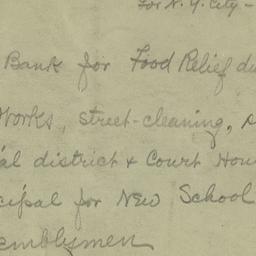 For N. Y. City -
Bank for Food Relief
Works, street-cleaning,
al district & Court
cipal for New School
emblymen